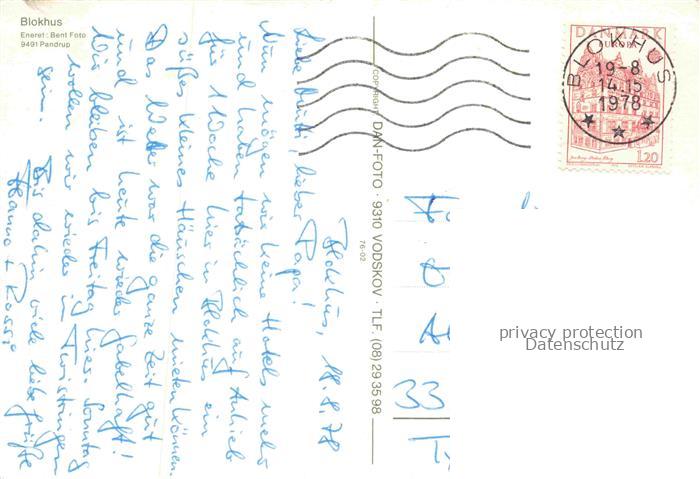 Blokhus
Eneret: Bent Foto
9491 Pandrup
Blokhus, 18.8.78
Liebe Mutti, lieber Papa!
Nun mögen wir keine Hotels mehr
und haben tatsächlich auf Anhieb
für 1 Woche hier in Blokhus ein
süßes kleines Häuschen mieten können.
Das Wetter war die ganze Zeit gut
und ist heute wieder fabelhaft!
Wir bleiben bis Freitag hier. Sonntag
wollen wir wieder in Twistringen
sein.
Bis dahin viele liebe Grüße
Hanno +
COPYRIGHT DAN-FOTO · 9310 VODSKOV · TLF. (08) 29 35 98
76-02
DANMARK
EUROPA
1.20
BLOKHUS
19-8
14.15
1978
33
privacy protection
Datenschutz